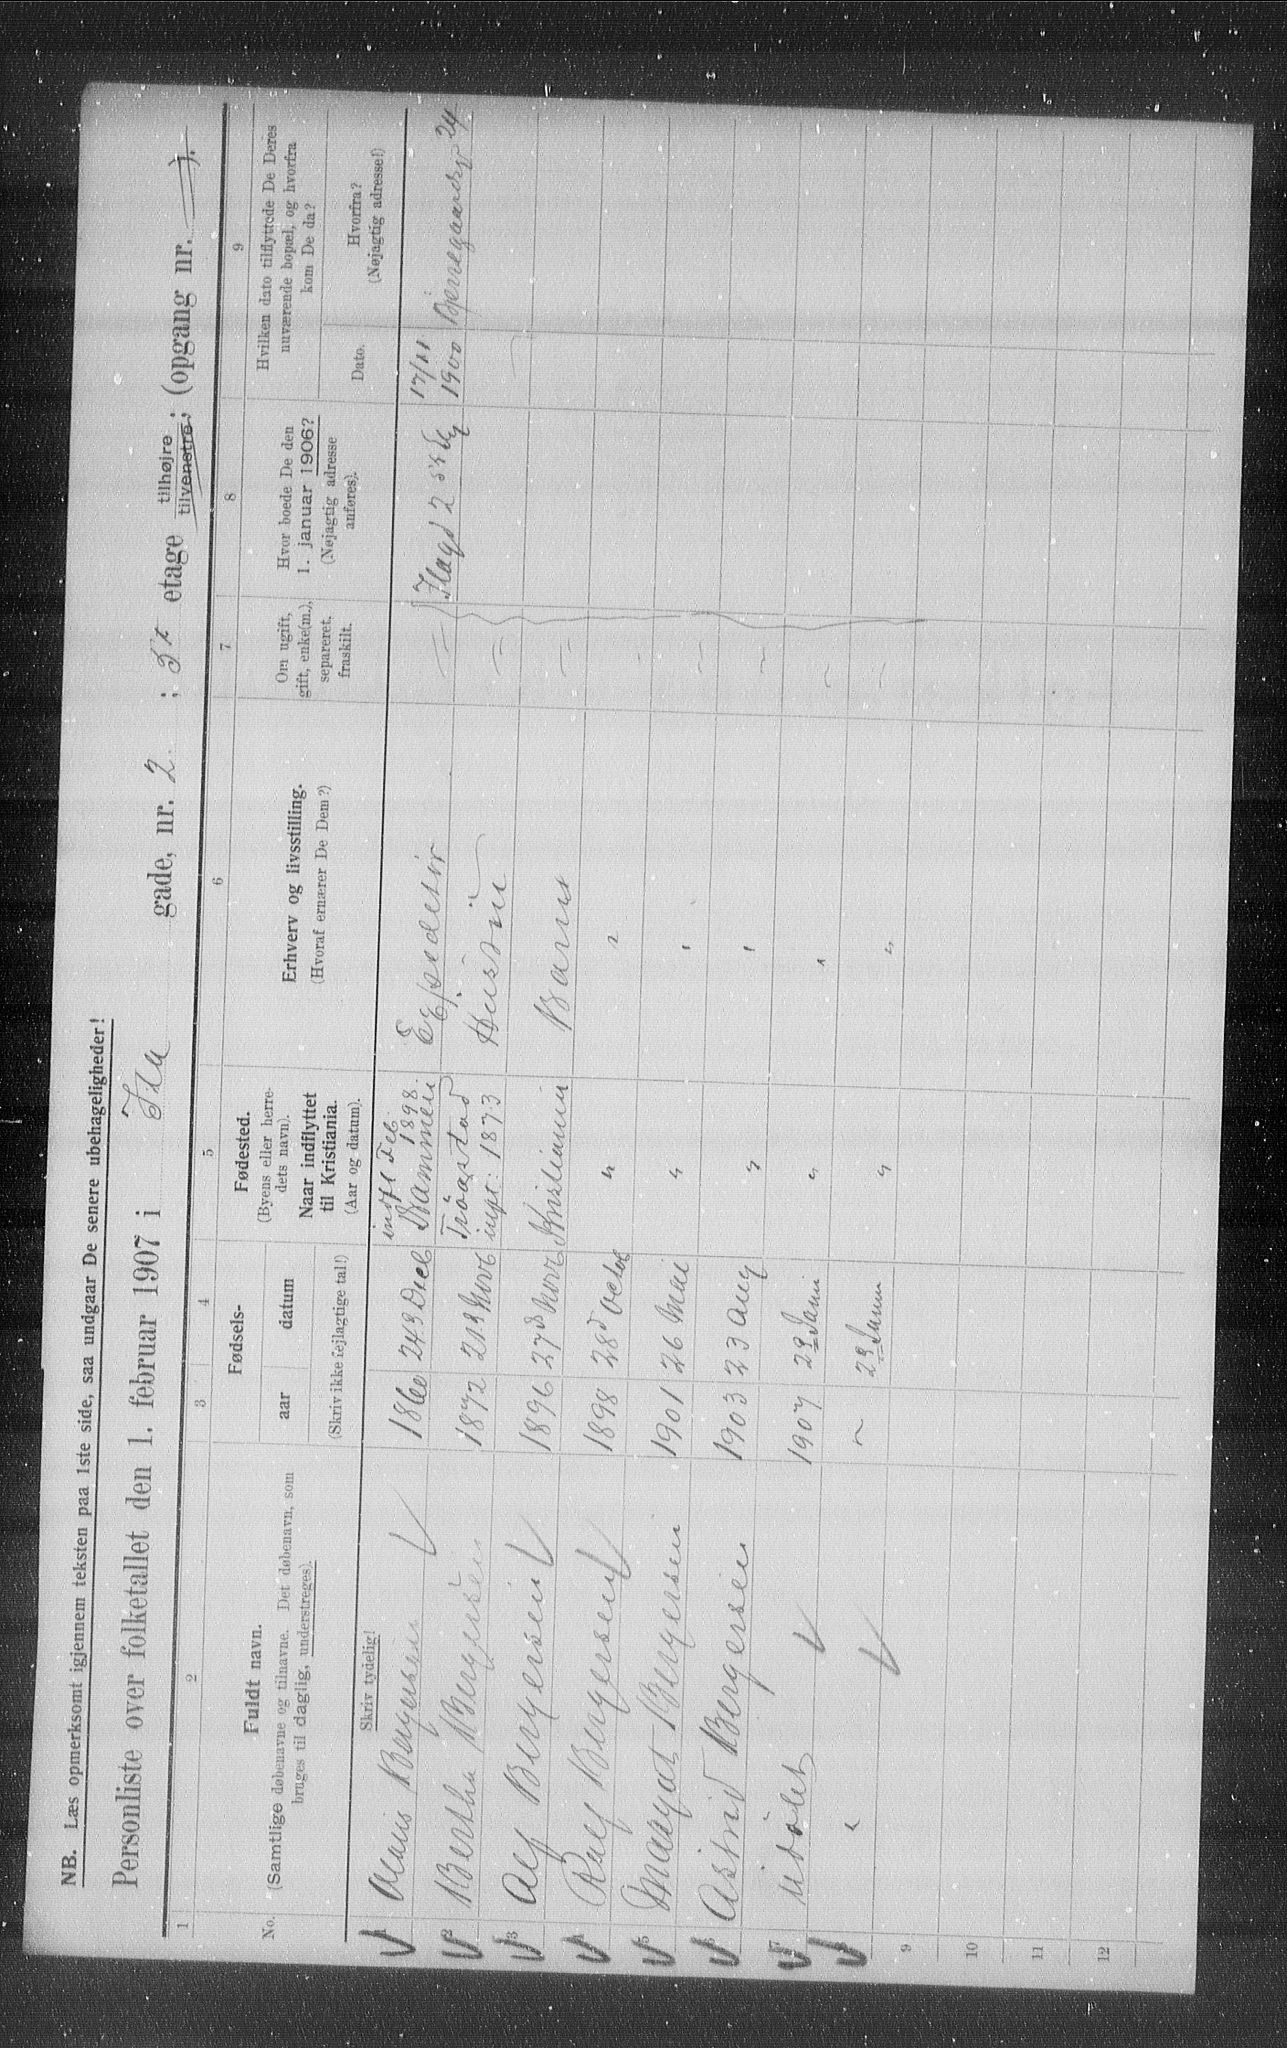 NB. Læs opmerksomt igjennem teksten paa 1ste side, saa undgaar De senere ubehageligheder!
Personliste over folketallet den 1. februar 1907 i Ila gade, nr. 2 ; 3die etage tilhøjre tilvenstre; (opgang nr. ).
1 2 3 4 5 6 7 8 9
No.
Fuldt navn.
(Samtlige døbenavne og tilnavne. Det døbenavn, som
bruges til daglig, understreges).
Fødsels-
aar datum
(Skriv ikke fejlagtige tal!)
Fødested.
(Byens eller herre-
dets navn).
Naar indflyttet
til Kristiania.
(Aar og datum).
Erhverv og livsstilling.
(Hvoraf ernærer De Dem?)
Om ugift,
gift, enke(m.),
separeret,
fraskilt.
Hvor boede De den
1. januar 1906?
(Nøjagtig adresse
anføres).
Hvilken dato tilflyttede De Deres
nuværende bopæl, og hvorfra
kom De da?
Dato.
Hvorfra?
(Nøjagtig adresse!)
Skriv tydelig!
1 Bergersen 1860 Feb. 1898 Drammen Expeditør Ilagd 2 17/11 1900 24
2 Bertha Bergersen 1872 21 Novb 1873 Hustru
3 Alf Bergersen 1896 27d Novb Kristiania Barn
4 Ralf Bergersen 1898 28d Octob " "
5 Margot Bergersen 1901 26 Mai " "
6 Astrid Bergersen 1903 23 aug " "
7 Udøbt 1907 29 Janu " "
8 " " 29 Janu " "
9
10
11
12